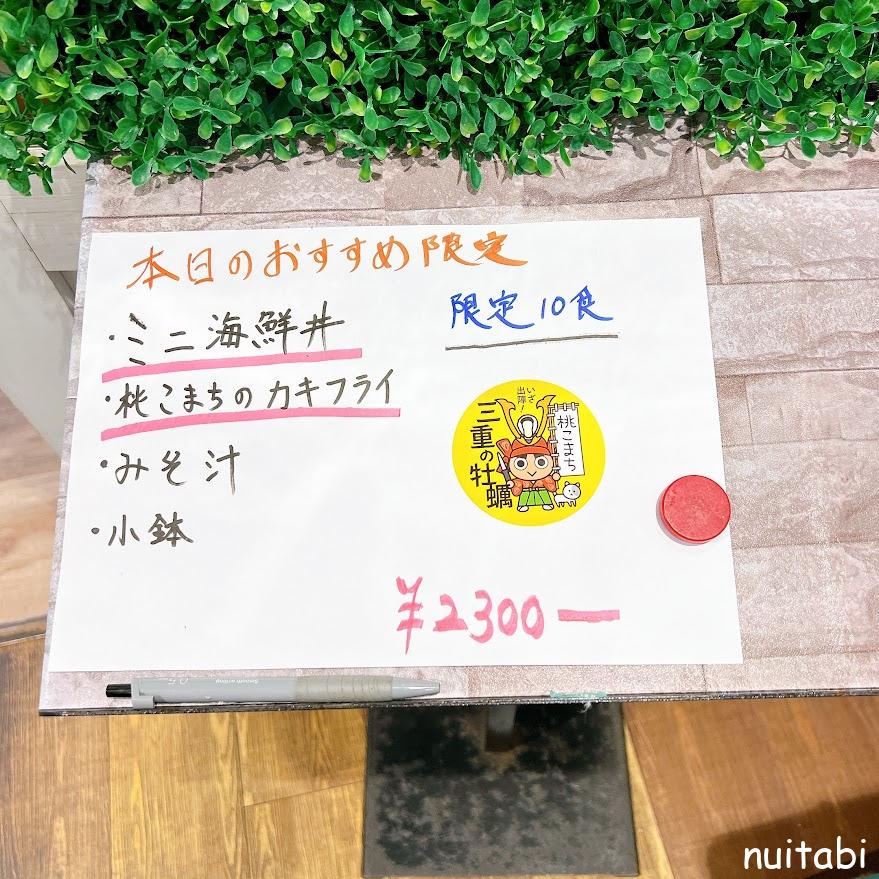 本日のおすすめ限定
・ミニ海鮮丼
限定10食
・桃こまちのカキフライ
・みそ汁
・小鉢
いざ
出陣!
三重の牡蠣
桃こまち
¥2300ー
Smooth writing
nuitabi